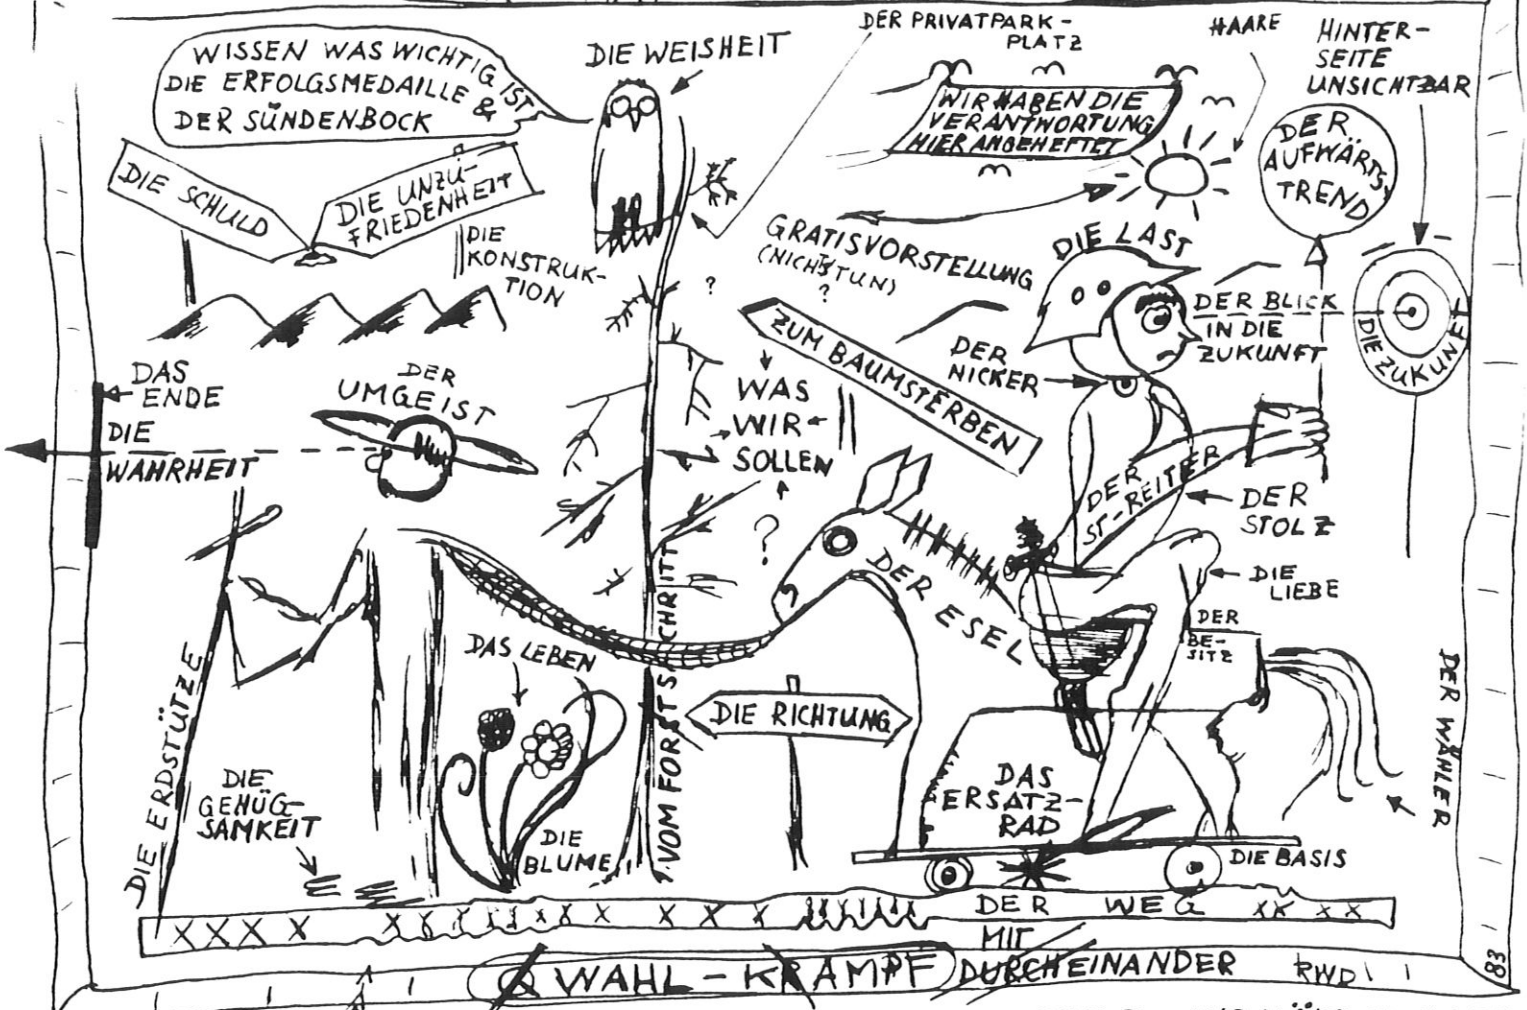 WISSEN WAS WICHTIG IST
DIE ERFOLGSMEDAILLE &
DER SÜNDENBOCK
DIE WEISHEIT
DER PRIVATPARK-
PLATZ
HAARE
HINTER-
SEITE
UNSICHTBAR
WIR HABEN DIE
VERANTWORTUNG
HIER ANGEHEFTET
DER
AUFWÄRTS-
TREND
DIE SCHULD
DIE UNZU-
FRIEDENHEIT
DIE
KONSTRUK-
TION
GRATISVORSTELLUNG
(NICHTSTUN)
?
?
DIE LAST
DER BLICK
IN DIE
ZUKUNFT
DIE ZUKUNFT
ZUM BAUMSTERBEN
DER
NICKER
DAS
ENDE
DIE
WAHRHEIT
DER
UMGEIST
WAS
WIR
SOLLEN
?
DER
ST-REITER
DER
STOLZ
DIE
LIEBE
DER ESEL
DER
BE-
SITZ
DAS LEBEN
DIE RICHTUNG
VOM FORSTSCHRITT
DIE ERDSTÜTZE
DIE
GENÜG-
SAMKEIT
DIE
BLUME
DAS
ERSATZ-
RAD
DIE BASIS
DER WÄHLER
XXXX XX XXX XX XXX
DER WEG XX XX
MIT
WAHL-KRAMPF DURCHEINANDER RWD
83